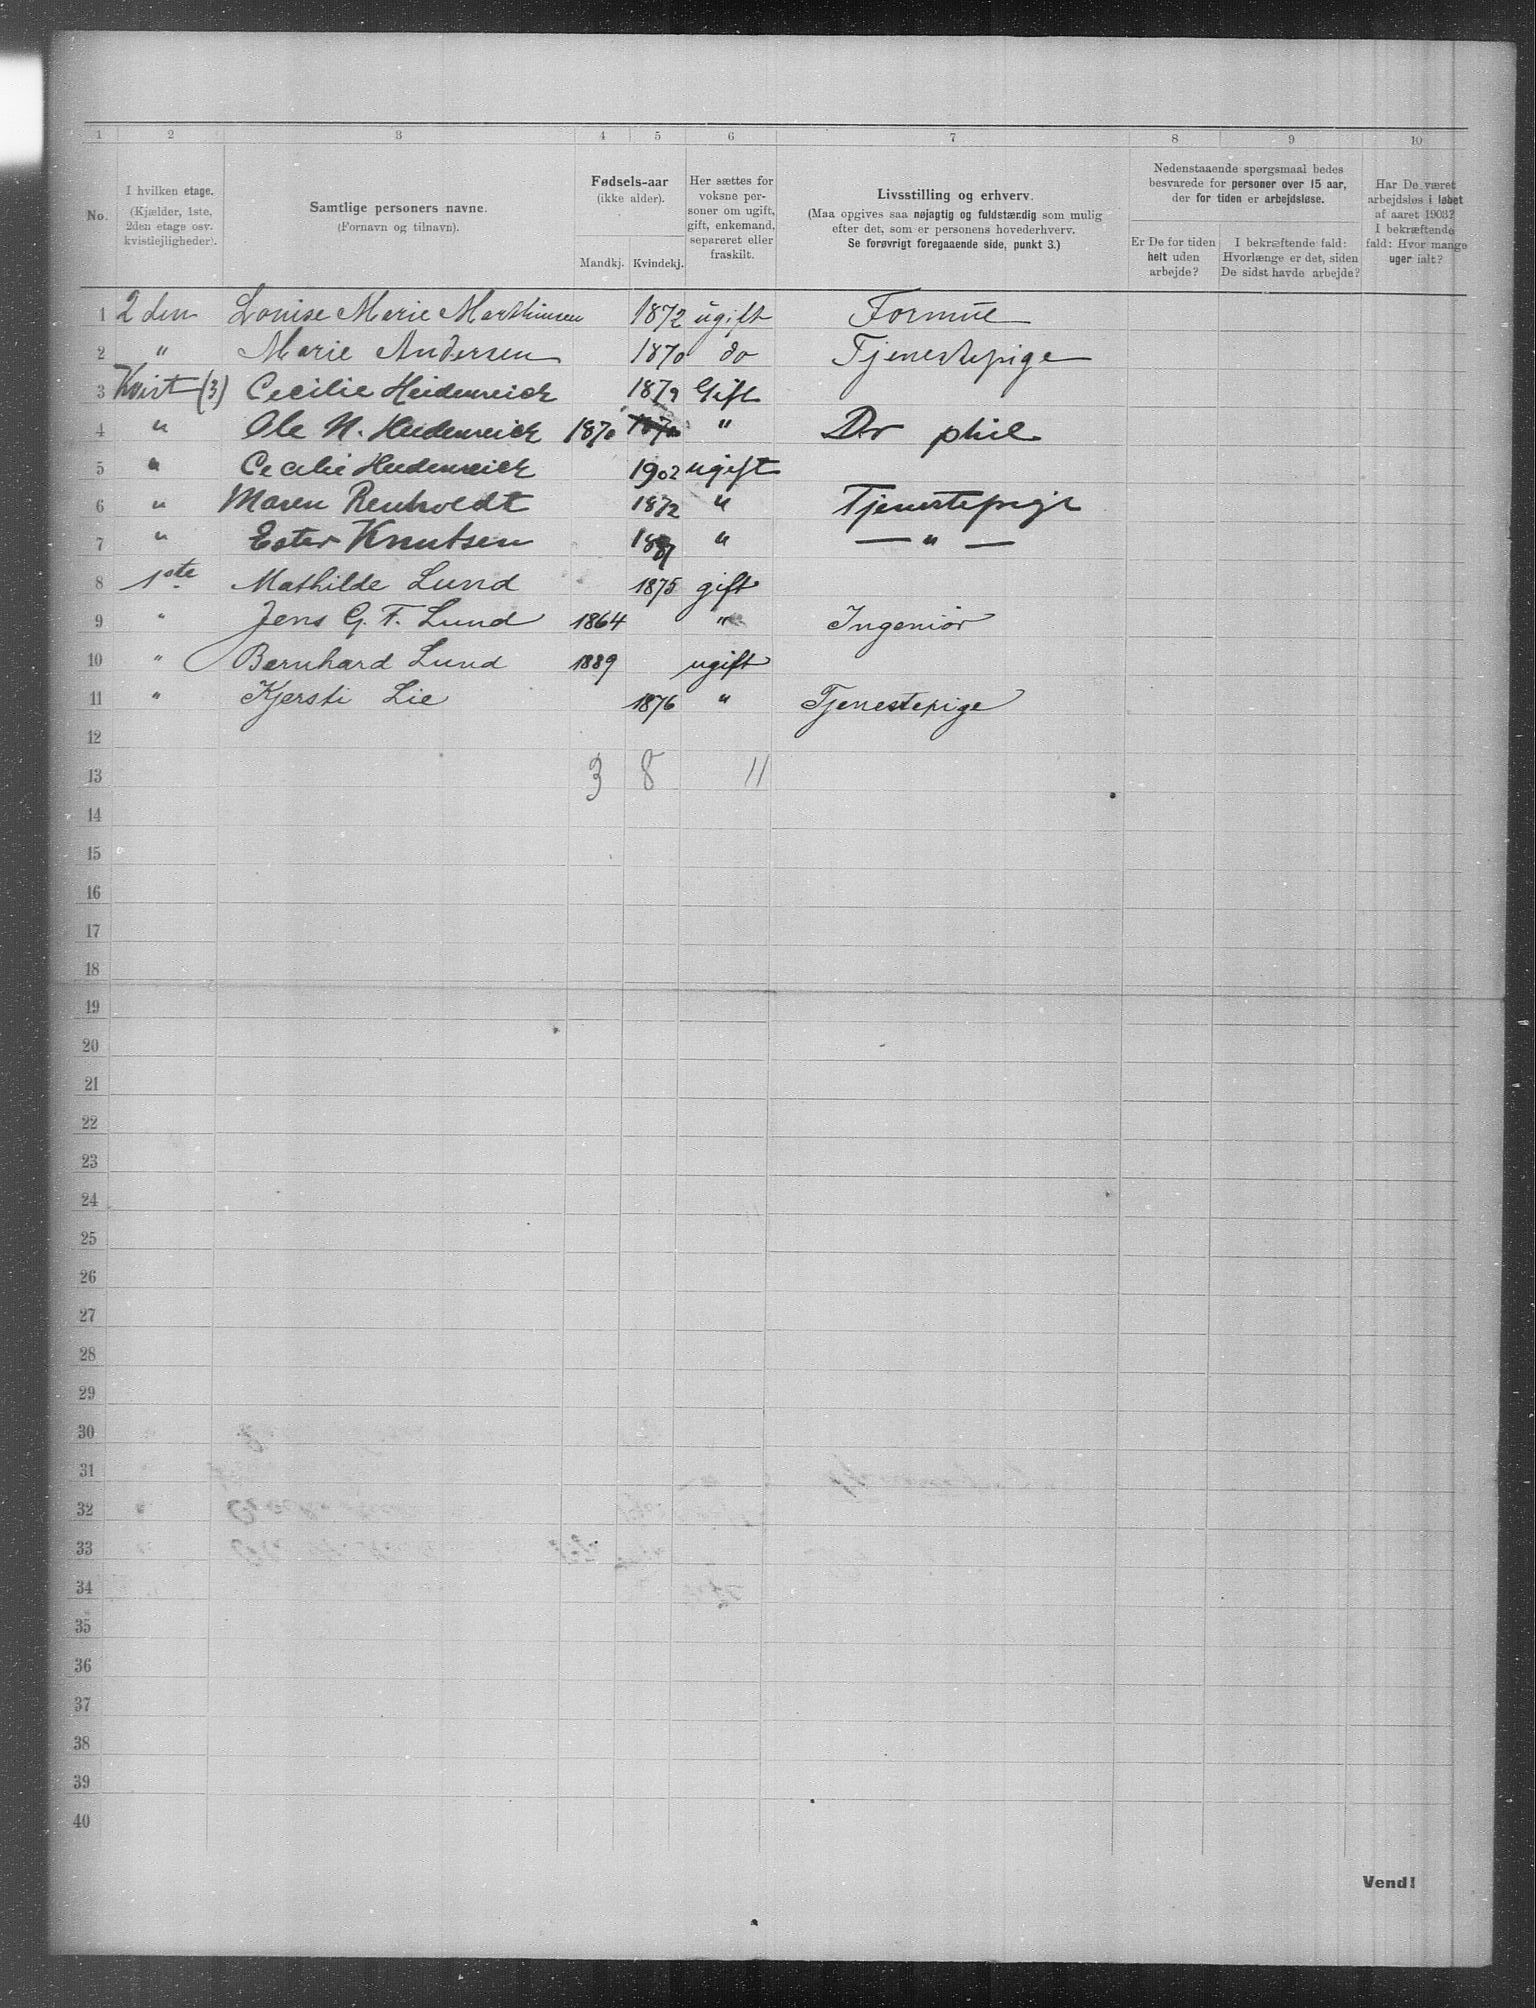 1 2 3 4 5 6 7 8 9 10
No. I hvilken etage. (Kjælder, 1ste, 2den etage osv. kvistlejligheder). Samtlige personers navne. (Fornavn og tilnavn). Fødsels-aar (ikke alder). Mandkj. Kvindekj. Her sættes for voksne personer om ugift, gift, enkemand, separeret eller fraskilt. Livsstilling og erhverv. (Maa opgives saa nøjagtig og fuldstændig som mulig efter det, som er personens hovederhverv. Se forøvrigt foregaaende side, punkt 3.) Nedenstaaende spørgsmaal bedes besvarede for personer over 15 aar, der for tiden er arbejdsløse. Er De for tiden helt uden arbejde? I bekræftende fald: Hvorlænge er det, siden De sidst havde arbejde? Har De været arbejdsløs i løbet af aaret 1903? I bekræftende fald: Hvor mange uger ialt?
1 2 den Louise Marie Marthinsen 1872 ugift Formue
2 " Marie Andersen 1870 do Tjenestepige
3 Kvist (3) Cecilie Heidenreich 1879 Gift
4 " Ole N. Heidenreich 1870 1870 " Dr phil
5 " Cecilie Heidenreich 1902 ugift
6 " Maren Renhvoldt 1872 " Tjenestepige
7 " Ester Knutsen 1887 " — " —
8 1ste Mathilde Lund 1875 gift
9 " Jens G. F. Lund 1864 " Ingeniør
10 " Bernhard Lund 1889 ugift
11 " Kjersti Lie 1876 " Tjenestepige
12
13 3 8 11
14
15
16
17
18
19
20
21
22
23
24
25
26
27
28
29
30
31
32
33
34
35
36
37
38
39
40
Vend!